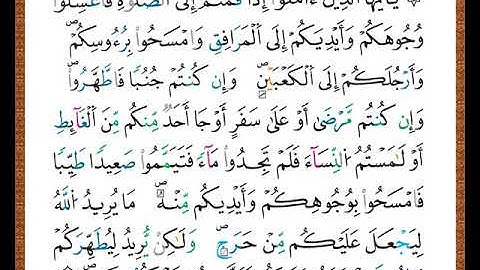 يَٰٓأَيُّهَا ٱلَّذِينَ ءَامَنُوٓا۟ إِذَا قُمْتُمْ إِلَى ٱلصَّلَوٰةِ فَٱغْسِلُوا۟
وُجُوهَكُمْ وَأَيْدِيَكُمْ إِلَى ٱلْمَرَافِقِ وَٱمْسَحُوا۟ بِرُءُوسِكُمْ
وَأَرْجُلَكُمْ إِلَى ٱلْكَعْبَيْنِ ۚ وَإِن كُنتُمْ جُنُبًا فَٱطَّهَّرُوا۟ ۚ
وَإِن كُنتُم مَّرْضَىٰٓ أَوْ عَلَىٰ سَفَرٍ أَوْ جَآءَ أَحَدٌ مِّنكُم مِّنَ ٱلْغَآئِطِ
أَوْ لَٰمَسْتُمُ ٱلنِّسَآءَ فَلَمْ تَجِدُوا۟ مَآءً فَتَيَمَّمُوا۟ صَعِيدًا طَيِّبًا
فَٱمْسَحُوا۟ بِوُجُوهِكُمْ وَأَيْدِيكُم مِّنْهُ ۚ مَا يُرِيدُ ٱللَّهُ
لِيَجْعَلَ عَلَيْكُم مِّنْ حَرَجٍ وَلَٰكِن يُرِيدُ لِيُطَهِّرَكُمْ